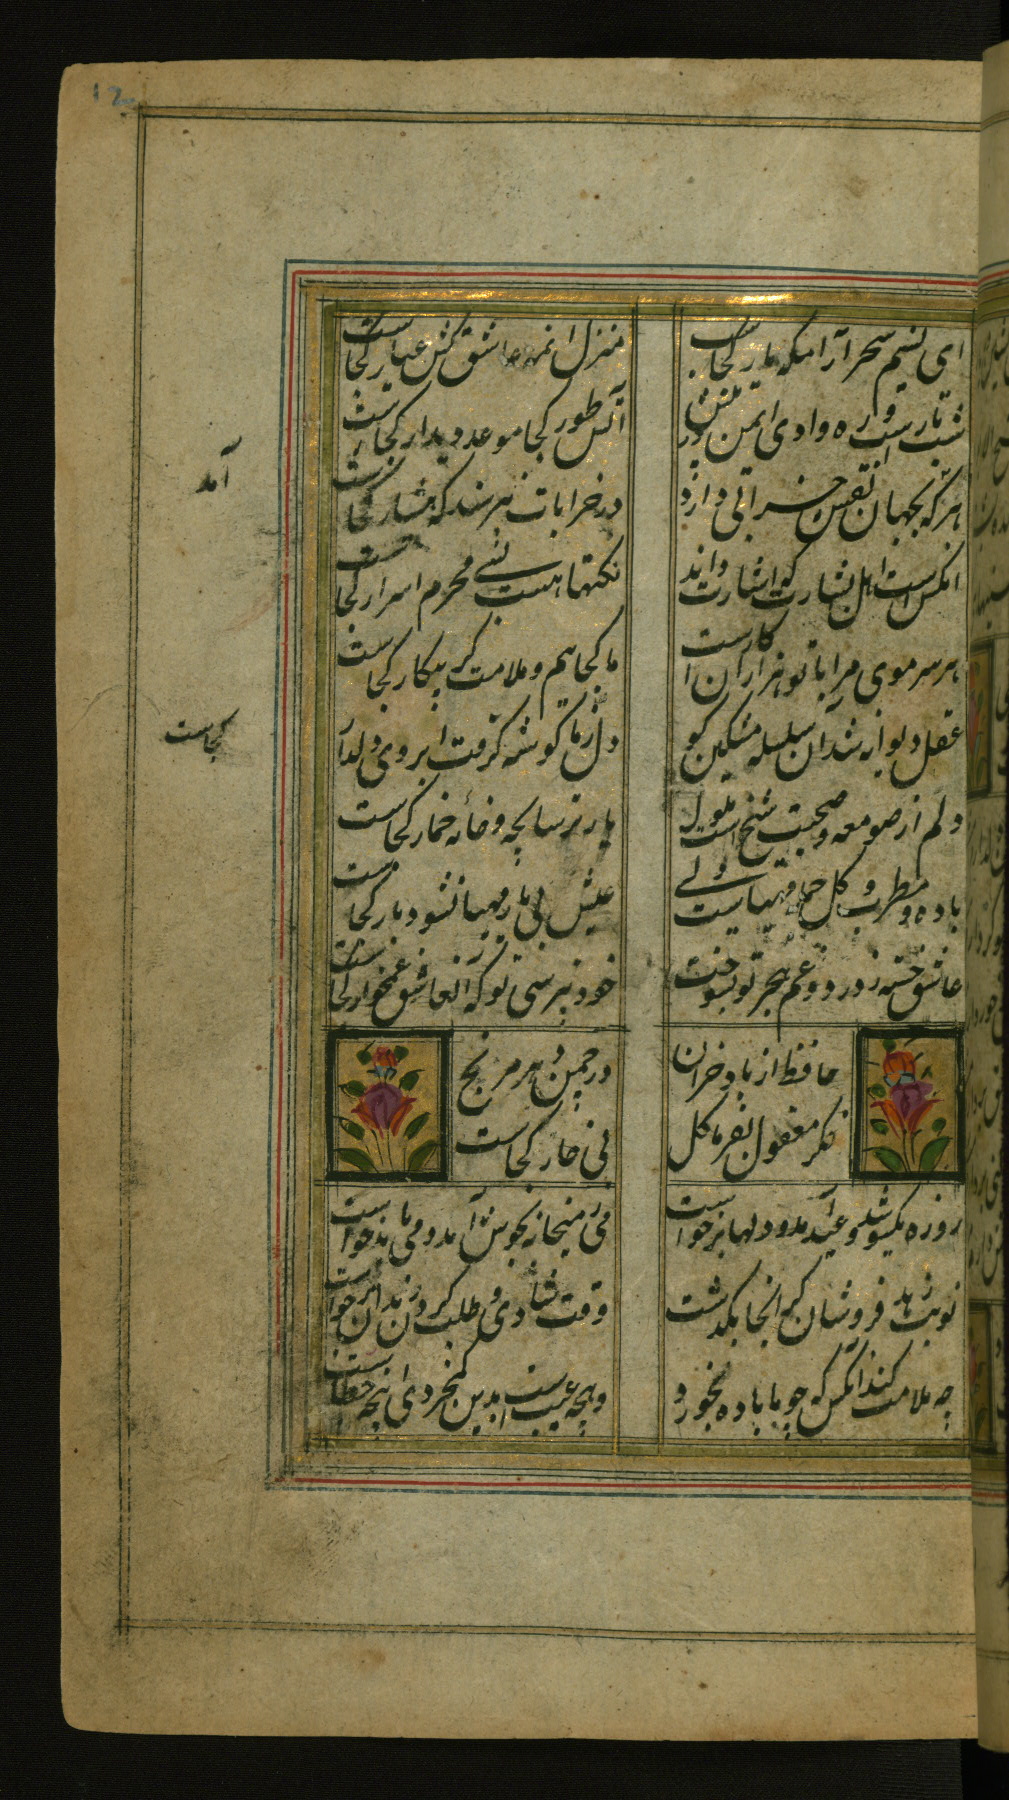 ای نسیم سحر آرامکه یار کجاست
منزل آن مه عاشق کش عیار کجاست
شب تارست و ره وادی ایمن در پیش
آتش طور کجا موعد دیدار کجاست
هر که بجهان نقش خرابی دارد
در خرابات نپرسند که هشیار کجاست
انکس است اهل بشارت که اشارت داند
نکتها هست بسی محرم اسرار کجاست
هر سر موی مرا با تو هزاران کارست
ما کجاییم و ملامت گر بیکار کجاست
عقل دیوانه شد آن سلسله مشکین کو
دل ز ما گوشه گرفت ابروی دلدار
دلم از صومعه و صحبت شیخ است ملول
یار ترسا بچه و خانه خمار کجاست
باده و مطرب و گل جمله مهیاست ولی
عیش بی یار مهیا نشود یار کجاست
عاشق خسته ز درد و غم هجر تو بسوخت
خود نپرسی تو که آن عاشق غمخوار کجاست
حافظ از باد خزان
در چمن دهر مرنج
فکر معقول بفرما گل
بی خار کجاست
روزه یکسو شد و عید آمد و دلها برخواست
می ز میخانه بجوش آمد و می باید خواست
نوبت زهد فروشان گران جا بگذشت
وقت شادی و طلب کردن رندان برخواست
چه ملامت کند آنکس که چو ما باده خورد
و چه عیب است بدین بیخردی این چه خطاست
آمد
کجاست
12